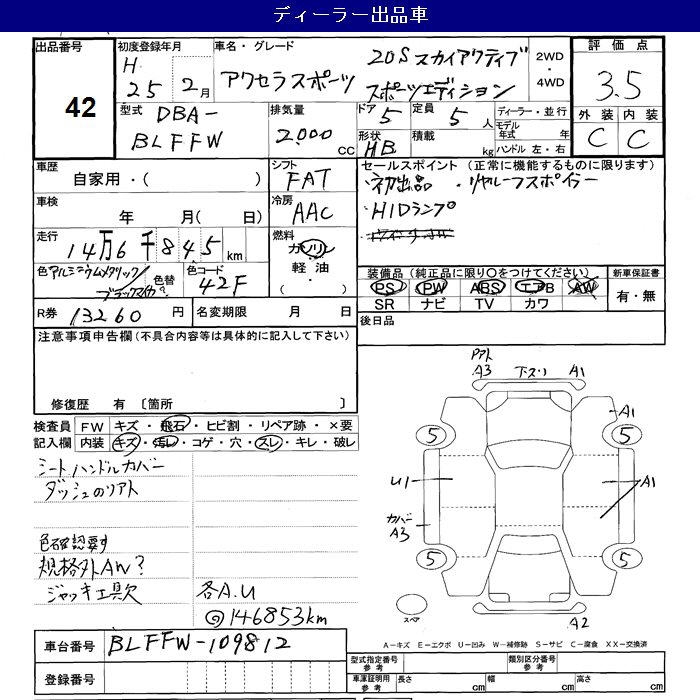 ディーラー出品車
出品番号 42
初度登録年月 H 25 2月
車名・グレード アクセラスポーツ 20S スカイアクティブ スポーツエディション
2WD・4WD
評価点 3.5
外装 C 内装 C
型式 DBA-BLFFW
排気量 2000 cc
ドア 5 定員 5人
形状 HB 積載 kg
ディーラー・並行
モデル年式 年
ハンドル 左・右
車歴 自家用・( )
シフト FAT
車検 年 月( 日)
冷房 AAC
走行 14万6千845km
燃料 ガソリン 軽油・( )
色 アルミニウムメタリック/ブラックマイカ?
色替
色コード 42F
セールスポイント (正常に機能するものに限ります)
初出品 ・リヤルーフスポイラー
HIDランプ
装備品(純正品に限り○をつけてください) 新車保証書
PS PW ABS エアB AW 有・無
SR ナビ TV カワ
R券 13260円 名変期限 月 日
後日品
注意事項申告欄(不具合内容等は具体的に記入して下さい)
修復歴 有 〔箇所 〕
検査員記入欄
FW キズ・飛石・ヒビ割・リペア跡・×要
内装 キズ・汚レ・コゲ・穴・スレ・キレ・破レ
シートハンドルカバー
ダッシュのリアト
色確認要す
規格外AW?
ジャッキ工具欠
各A.U
◎146853km
アト A3 下スリ A1
5 A1 5
U1 A1
カバー A3
5 5
スペア A2
A-キズ E-エクボ U-凹み W-補修跡 S-サビ C-腐食 XX-交換済
車台番号 BLFFW-109812
登録番号
型式指定番号 参考 類別区分番号 参考
車庫証明用 参考 長さ cm 幅 cm 高さ cm